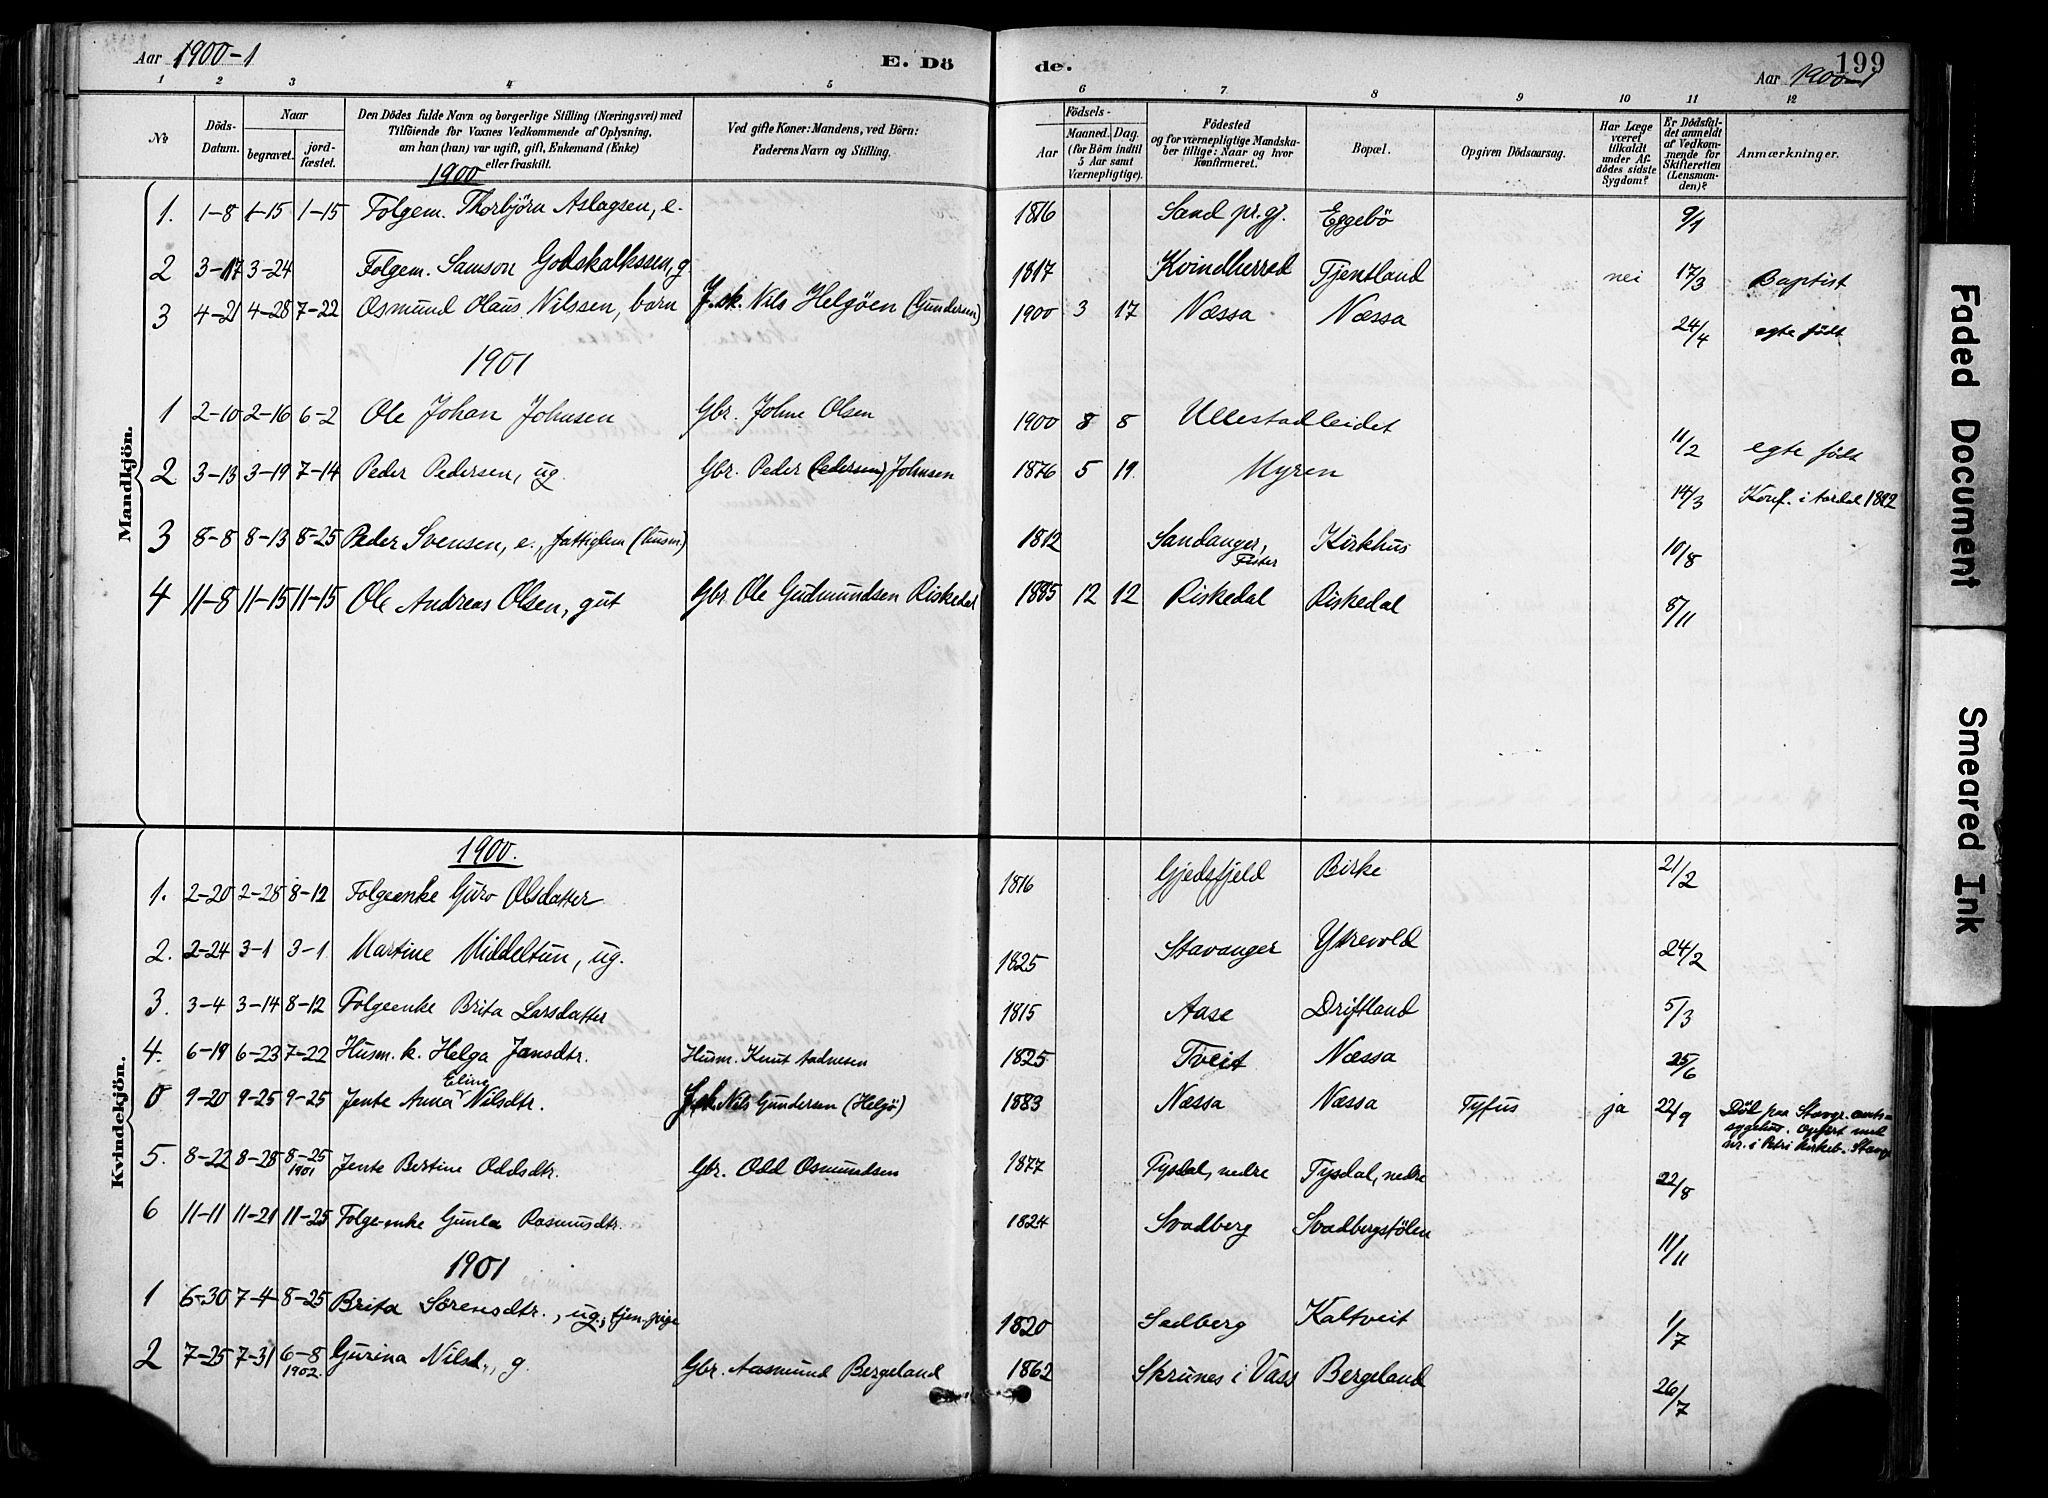 Aar 1900-1 E. Dö de. 199
Aar 1900-1
1 2 3 4 5 6 7 8 9 10 11 12
No Döds-Datum. Naar begravet. jord-fæstet. Den Dödes fulde Navn og borgerlige Stilling (Næringsvei) med Tilföiende for Voxnes Vedkommende af Oplysning, om han (han) var ugift, gift, Enkemand (Enke) eller fraskilt. Ved gifte Koner: Mandens, ved Börn: Faderens Navn og Stilling. Födsels- Aar Maaned. Dag. (for Börn indtil 5 Aar samt Værnepligtige). Födested og for værnepligtige Mandska-ber tillige: Naar og hvor Konfirmeret. Bopæl. Opgiven Dödsaarsag. Har Læge været tilkaldt under Af-dödes sidste Sygdom? Er Dödsfal-det anmeldt af Vedkom-mende for Skifteretten (Lensman-den)? Anmærkninger.
Mandkjön.
1900
1. 1-8 1-15 1-15 Folgem. Thorbjörn Aslagsen, e. 1816 Sand pr.gj. Eggebö 9/1
2 3-17 3-24 Folgem. Samson Godskalkssen, g. 1817 Kvindherred Tjentland nei 17/3 Baptist
3 4-21 4-28 7-22 Osmund Olaus Nilssen, barn J.sk. Nils Helgöen (Gundersen) 1900 3 17 Næssa Næssa 24/4 egte födt
1901
1 2-10 2-16 6-2 Ole Johan Johnsen Gbr. Johne Olsen 1900 8 8 Ullestadleidet 11/2 egte födt
2 3-13 3-19 7-14 Peder Pedersen, ug. Gbr. Peder (Pedersen) Johnsen 1876 5 19 Myren 14/3 Konf. i Aardal 1892
3 8-8 8-13 8-25 Peder Svensen, e., fattiglem (husm) 1812 Sandanger, Fister Kirkhus 10/8
4 11-8 11-15 11-15 Ole Andreas Olsen, gut Gbr. Ole Gudmundsen Riskedal 1885 12 12 Riskedal Riskedal 8/11
Kvindekjön.
1900.
1. 2-20 2-28 8-12 Folgeenke Guro Olsdatter 1816 Gjedsfjeld Birke 21/2
2. 2-24 3-1 3-1 Martine Middeltun, ug. 1825 Stavanger Ytrevold 24/2
3. 3-4 3-14 8-12 Folgeenke Brita Larsdatter 1815 Aase Driftland 5/3
4. 6-19 6-23 7-22 Husm. k. Helga Jansdtr. Husm. Knut Aadnesen 1825 Tveit Næssa 25/6
0 9-20 9-25 9-25 Jente Anna Eline Nilsdtr. J.sk. Nils Gundersen (Helgö) 1883 Næssa Næssa Tyfus ja 22/9 Död paa Stavgr. amts-sygehus. Opfört med nr. i Petri kirkeb. Stavgr.
5. 8-22 8-28 8-25 1901 Jente Bertine Oddsdtr. Gbr. Odd Osmundsen 1877 Tysdal, nedre Tysdal, nedre 22/8
6 11-11 11-21 11-25 Folge-enke Gunla Rasmusdtr. 1824 Svadberg Svadbergsfölen 11/11
1901
1 6-30 7-4 8-25 Brita Sörensdtr., ug., tjen. pige 1820 Sedberg Kaltveit 1/7
2 7-25 7-31 6-8 1902. Gurina Nilsd., g. Gbr. Aasmund Bergeland 1862 Skrunes i Vass Bergeland 26/7
Faded Document
Smeared Ink